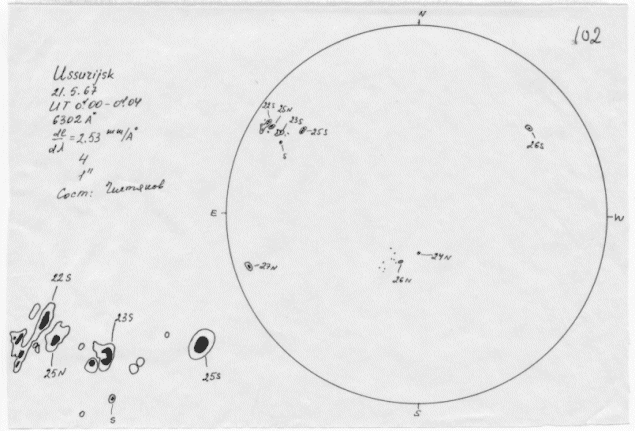 102
Ussurijsk
21.5.67
UT 0ʰ00-0ʰ04
6302 A°
dl/dλ = 2.53 mm/A°
4
1"
Сост: Чистяков
N
22S
25N
23S
25S
S
26S
E
W
27N
24N
26N
S
22S
23S
25N
25S
S